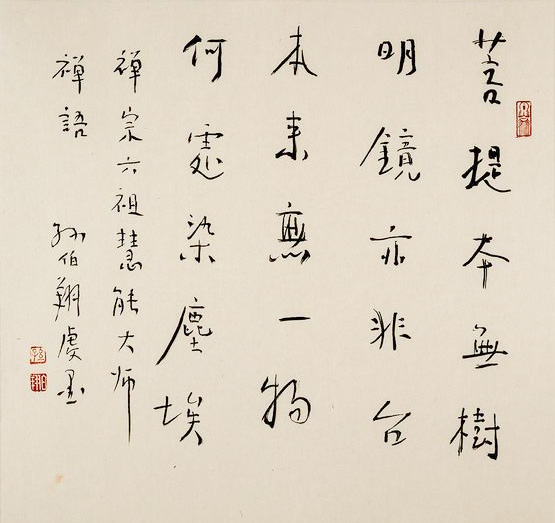 菩提本無樹
明鏡亦非台
本来無一物
何處染塵埃
禪宗六祖慧能大师
禪語
孙伯翔虔墨